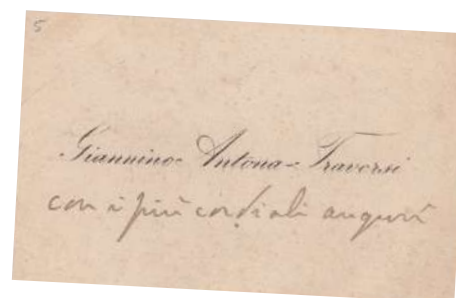 5
Giannino Antona-Traversi
con i più cordiali auguri